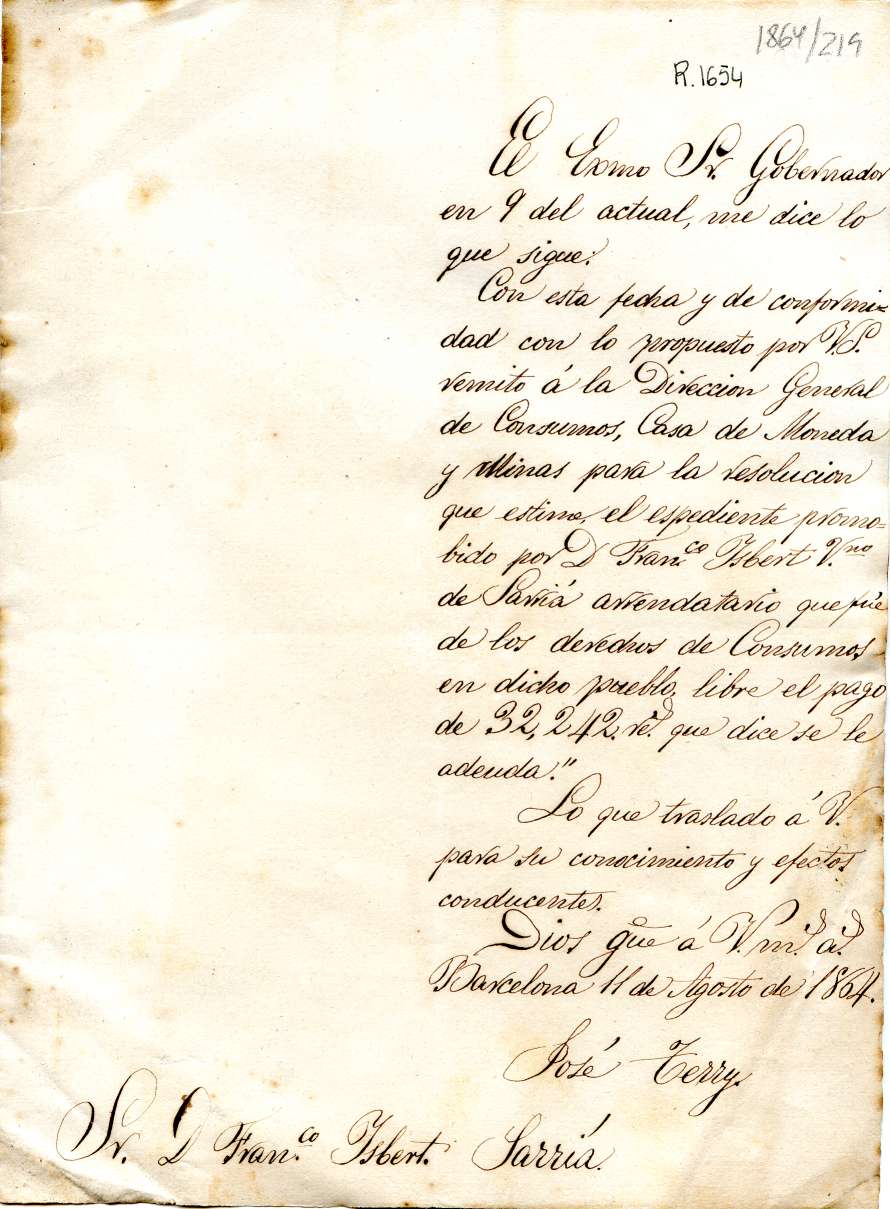 1864/219
R.1654
El Exmo Sr. Gobernador
en 9 del actual, me dice lo
que sigue:
Con esta fecha y de conformi=
dad con lo propuesto por V.S.
remito á la Direccion General
de Consumos, Casa de Moneda
y Minas para la resolucion
que estime, el espediente promo-
bido por D Fran.co Isbert V.no
de Sarriá arrendatario que fúe
de los derechos de Consumos
en dicho pueblo, libre el pago
de 32,242. rs. que dice se le
adeuda."
Lo que traslado á V.
para su conocimiento y efectos
conducentes.
Dios gũe á V. m.s a.s
Barcelona 11 de Agosto de 1864.
José Terry.
Sr. D Fran.co Isbert. Sarriá.